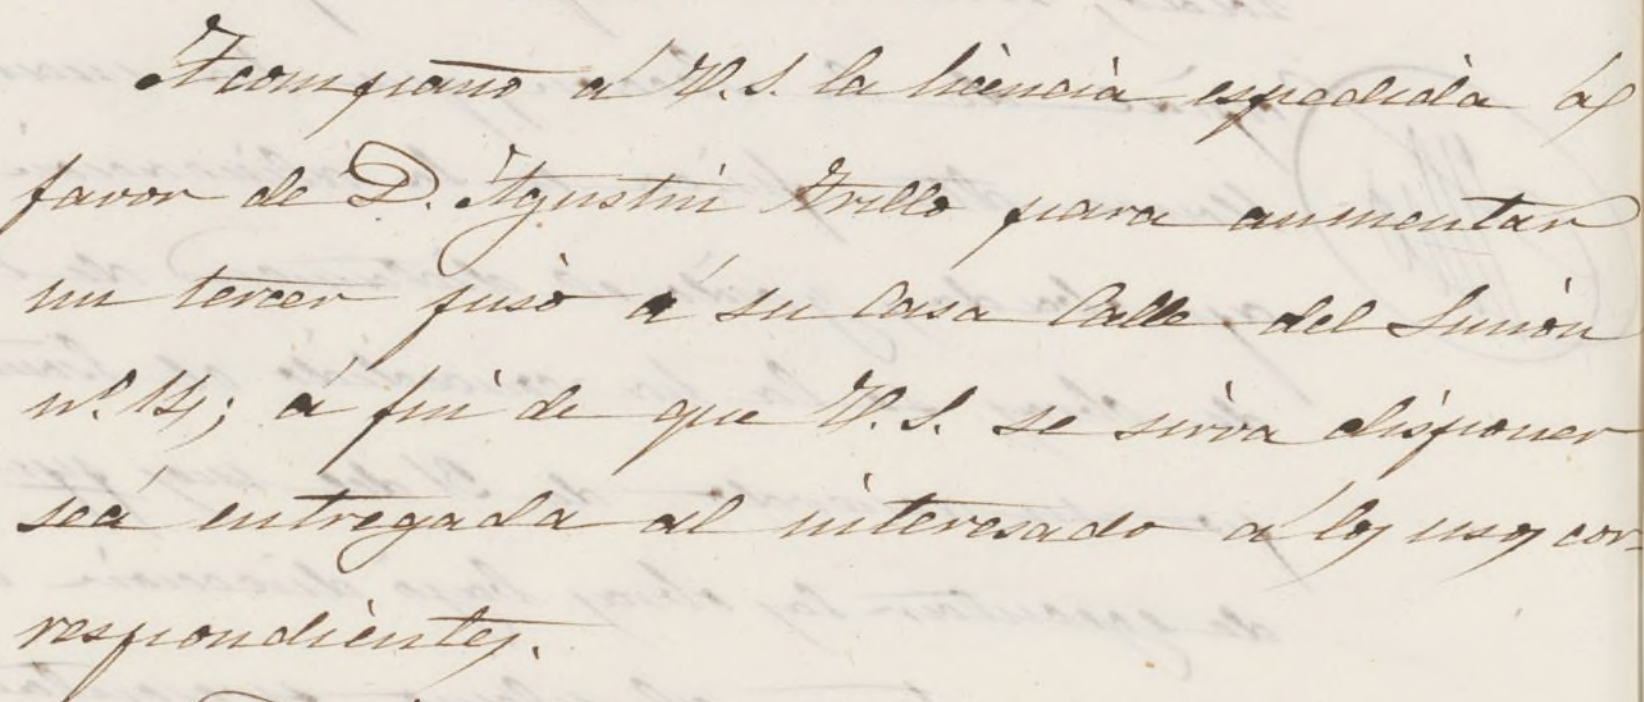 Acompaño á V.S. la licencia espedida á
favor de D. Agustin Trillo para aumentar
un tercer piso á su Casa Calle del Limón
nº 14; á fin de que V.S. se sirva disponer
seá entregada al interesado á los usos cor-
respondientes.